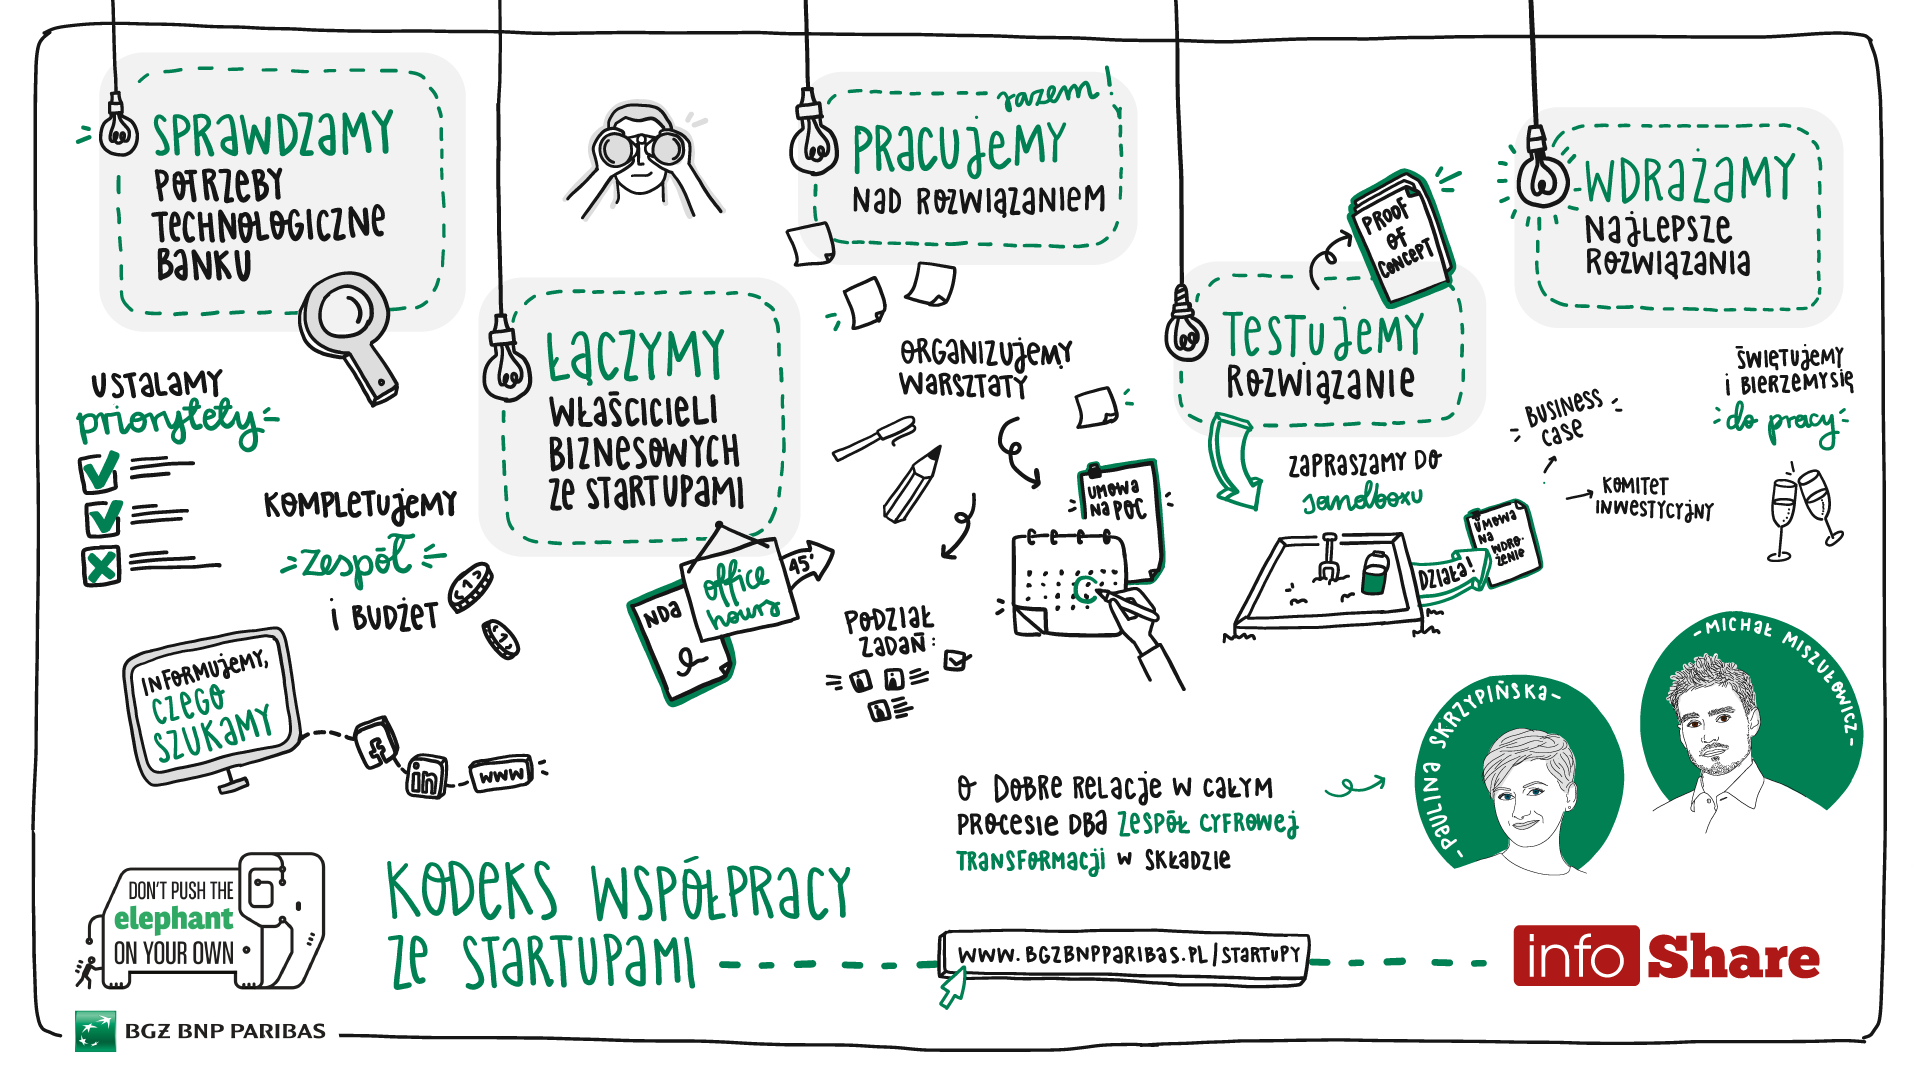 SPRAWDZAMY
POTRZEBY
TECHNOLOGICZNE
BANKU
USTALAMY
priorytety
KOMPLETUJEMY
zespół
i BUDŻET
INFORMUJEMY,
CZEGO
SZUKAMY
in
www
ŁĄCZYMY
WŁAŚCICIELI
BIZNESOWYCH
ZE STARTUPAMI
NDA
office
hours
45'
razem!
PRACUJEMY
NAD ROZWIĄZANIEM
ORGANIZUJEMY
WARSZTATY
UMOWA
NA POC
PODZIAŁ
ZADAŃ:
PROOF
OF
CONCEPT
TESTUJEMY
ROZWIĄZANIE
ZAPRASZAMY DO
sandboxu
DZIAŁA!
UMOWA
NA
WDRO-
ŻENIE
WDRAŻAMY
NAJLEPSZE
ROZWIĄZANIA
BUSINESS
CASE
KOMITET
INWESTYCYJNY
ŚWIĘTUJEMY
i BIERZEMY SIĘ
do pracy
O DOBRE RELACJE W CAŁYM
PROCESIE DBA ZESPÓŁ CYFROWEJ
TRANSFORMACJI W SKŁADZIE
-PAULINA SKRZYPIŃSKA-
-MICHAŁ MISZUŁOWICZ-
DON'T PUSH THE
elephant
ON YOUR OWN
KODEKS WSPÓŁPRACY
ZE STARTUPAMI
WWW.BGZBNPPARIBAS.PL/STARTUPY
info Share
BGŻ BNP PARIBAS